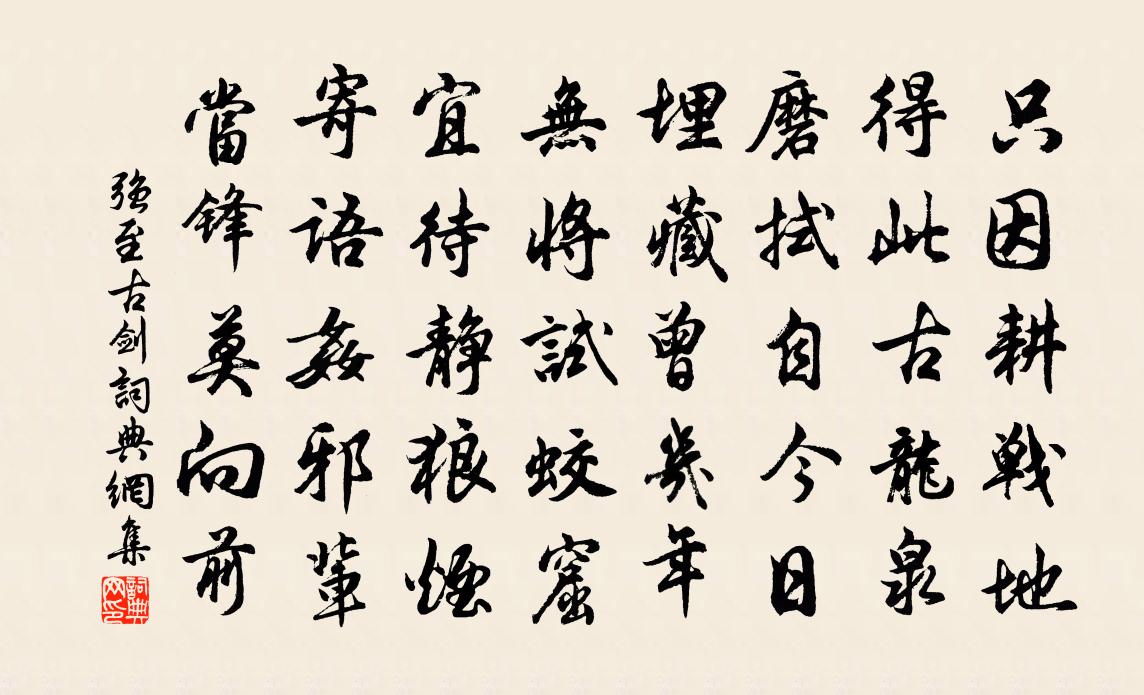 只因耕戰地
得此古龍泉
磨拭自今日
埋藏曾幾年
無將試蛟窟
宜待靜狼煙
寄語姦邪輩
當鋒莫向前
强至古劍詞典網集
詞典網印